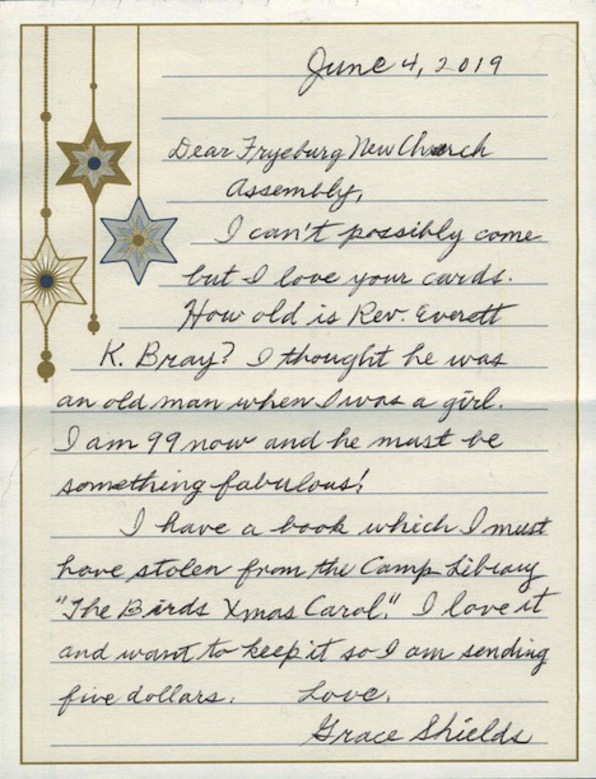 June 4, 2019
Dear Fryeburg New Church
Assembly,
I can't possibly come
but I love your cards.
How old is Rev. Everett
K. Bray? I thought he was
an old man when I was a girl.
I am 99 now and he must be
something fabulous!
I have a book which I must
have stolen from the Camp Library
"The Birds Xmas Carol." I love it
and want to keep it so I am sending
five dollars. Love,
Grace Shields